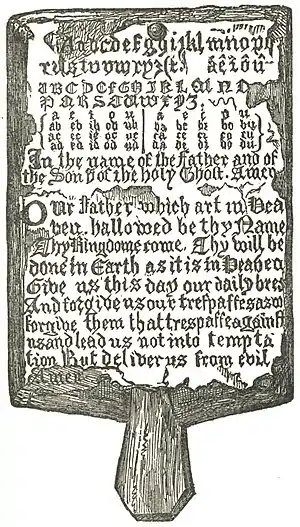 Aabcdefggijklmnopq
rſstuvwxyz&t. āēīōū
ABCDEFGHIKLMNO
PQRSTUWXYZ.
a e i o u a e i o u
ab eb ib ob ub ba be bi bo bu
ac ec ic oc uc ca ce ci co cu
ad ed id od ud da de di do du
In the name of the Father and of
the Son & of the holy Ghost. Amen
Our Father which art in Hea
ven, hallowed be thy Name
Thy Kingdome come, Thy will be
done in Earth as it is in Heaven.
Give us this day our daily bred
And forgive us our treſpaſſes as we
forgive them that treſpaſſe againſt
us and lead us not into tempta
tion But deliver us from evil
Amen